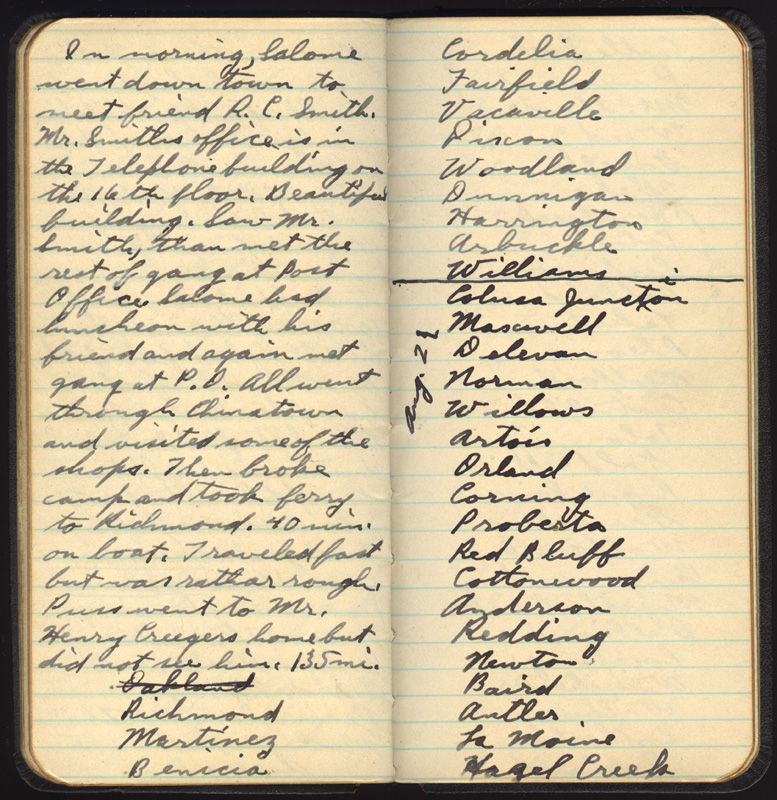 In morning, Salome
went down town to
meet friend R. C. Smith.
Mr. Smiths office is in
the Telephone building on
the 16th floor. Beautiful
building. Saw Mr.
Smith, than met the
rest of gang at Post
Office. Salome had
luncheon with his
friend and again met
gang at P.O. All went
through Chinatown
and visited some of the
shops. Then broke
camp and took ferry
to Richmond. 40 min.
on boat. Traveled fast
but was rathar rough.
Puss went to Mr.
Henry Creegers home but
did not see him. 135 mi.
Oakland
Richmond
Martinez
Benicia
Cordelia
Fairfield
Vacaville
Dixon
Woodland
Dunnigan
Harrington
Arbuckle
Williams
Colusa Junction
Maxwell
Delevan
Norman
Willows
Artois
Orland
Corning
Proberta
Red Bluff
Cottonwood
Anderson
Redding
Newton
Baird
Antler
La Moine
Hazel Creek
Aug. 21